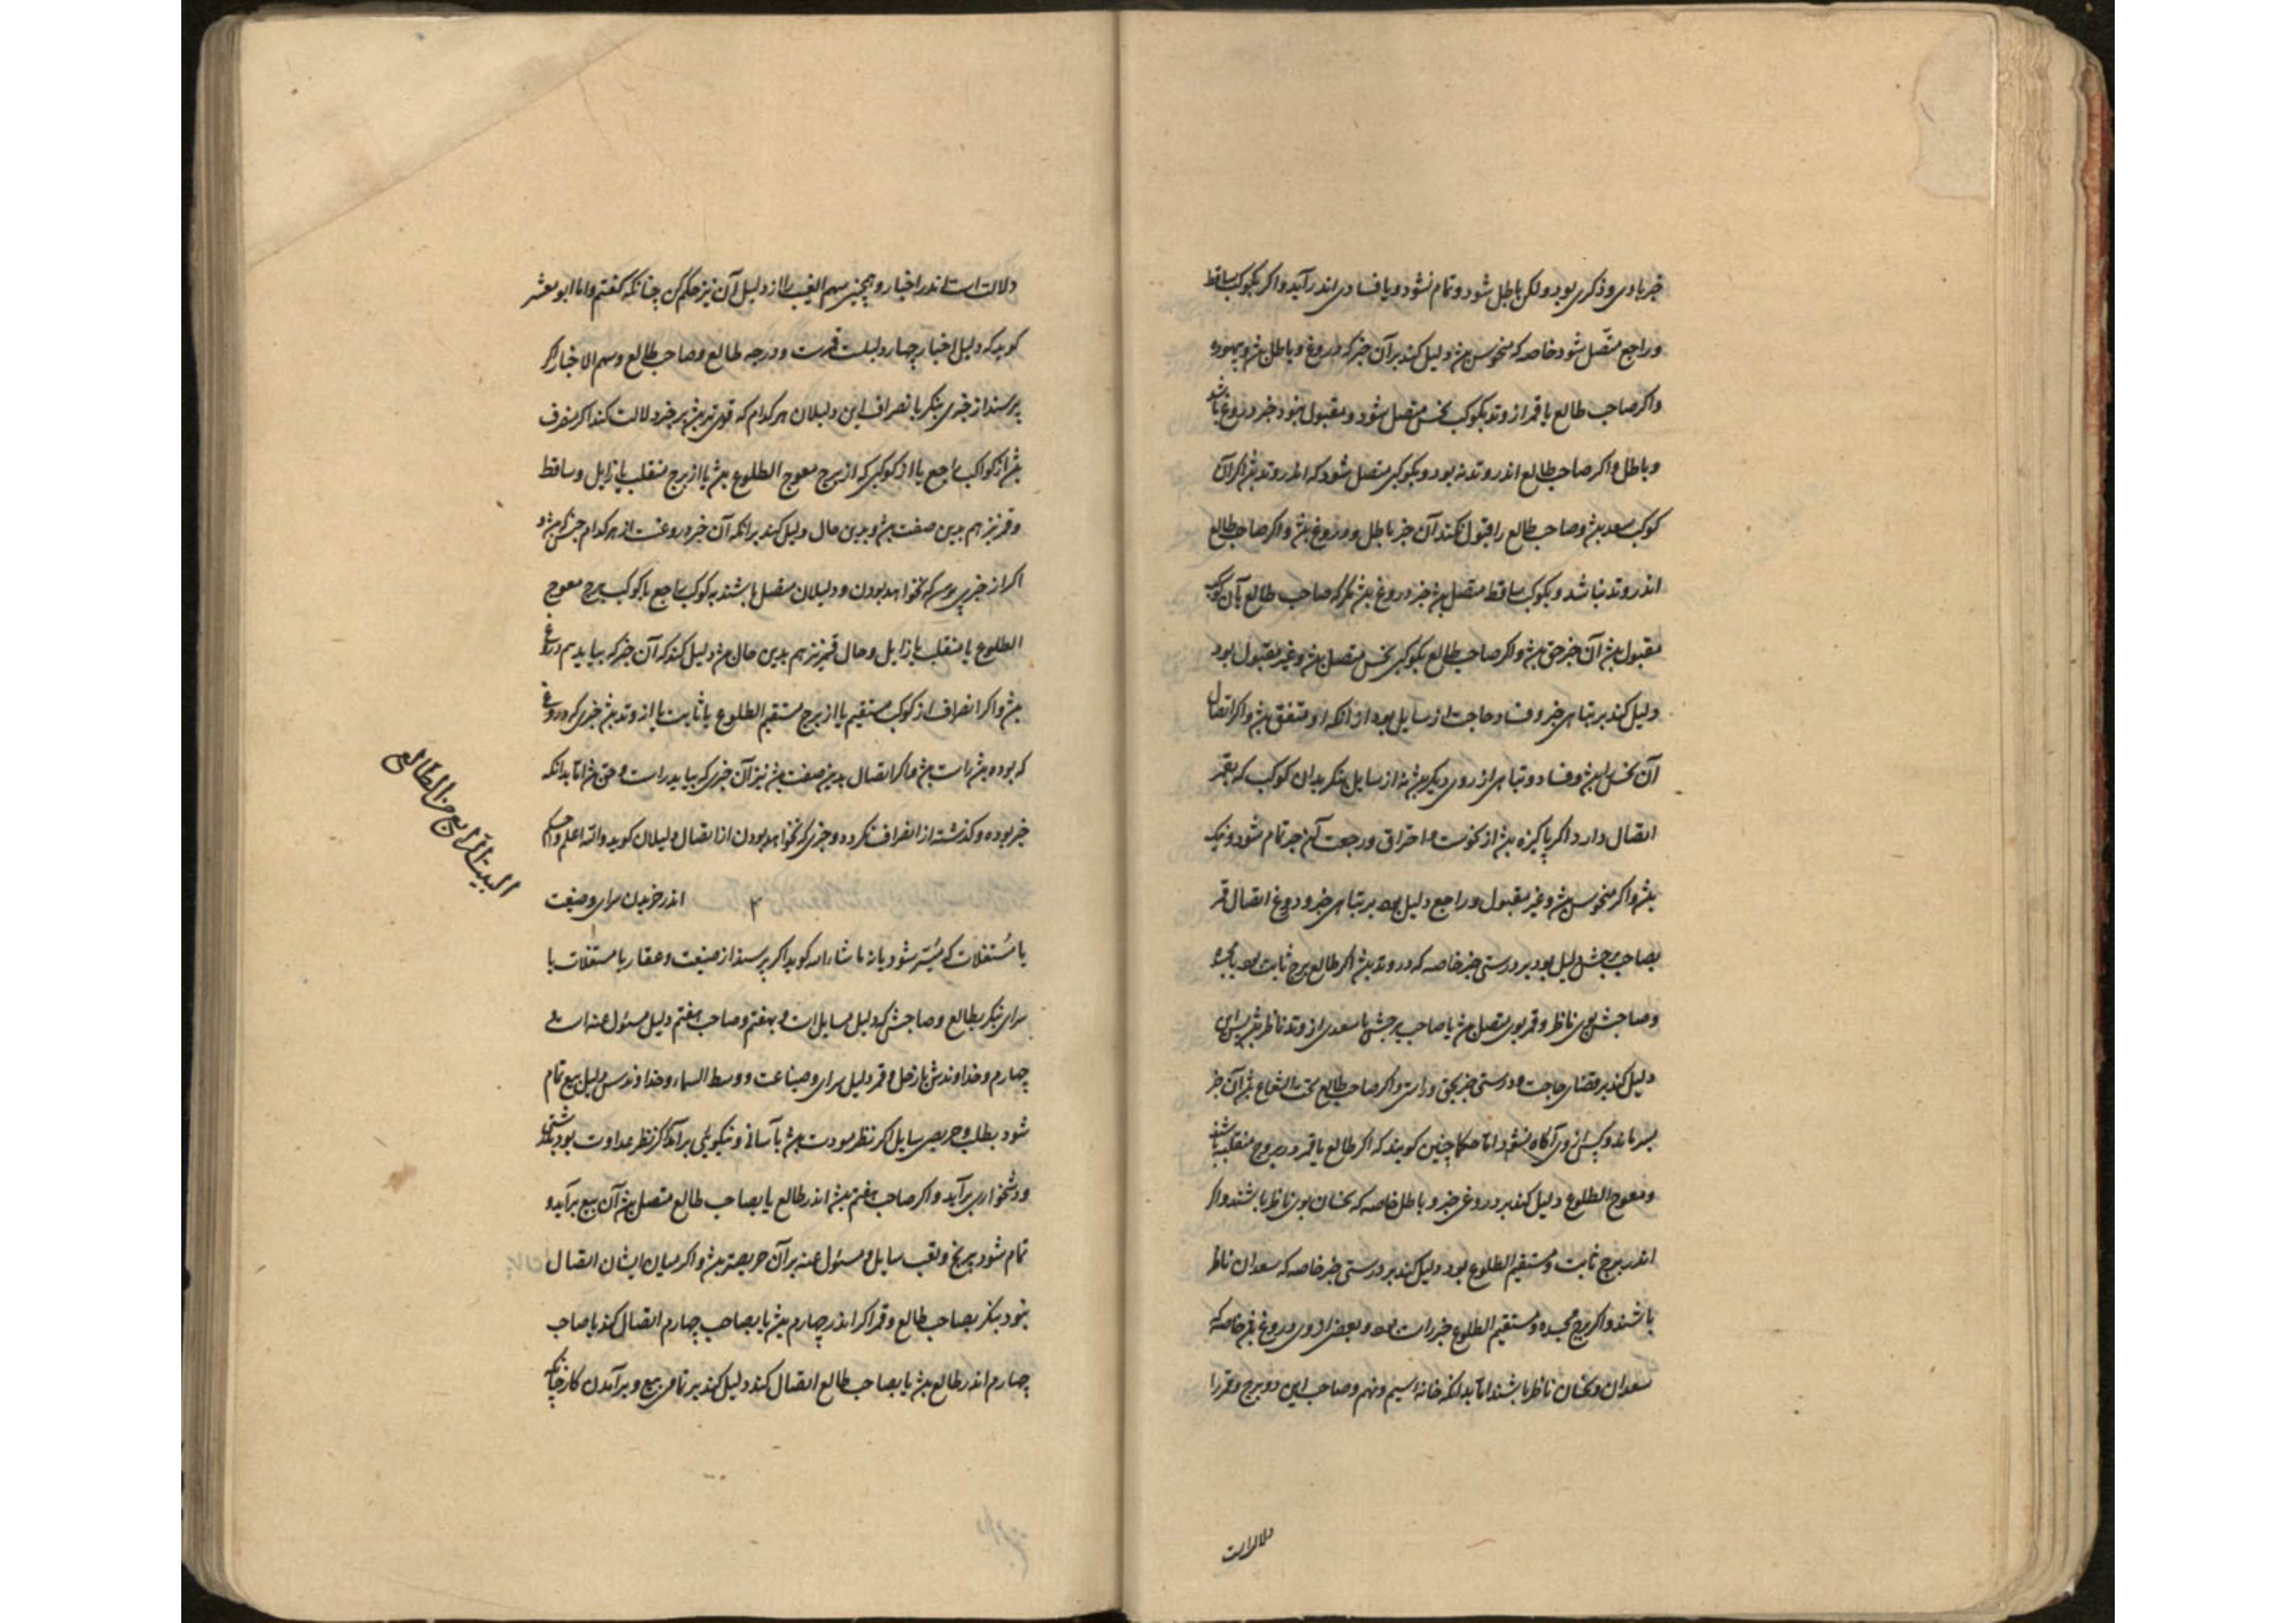 خبر یاوی و ذکری بود ولکن باطل شود و تمام نشود و یا فسادی اندر آید واکر بکوکب ساقط
وراجع متّصل شود خاصه که منحوس بشذ دلیل کند بر آن خبر که دروغ و باطل بشذ و بیهوده
واکر صاحب طالع یا قمر از وتد بکوکب نحس متصل شود و مقبول نبود خبر دروغ باشد
و باطل واکر صاحب طالع اندر وتد نه بود و بکوکبی متصل شود که اندر وتد بشذ اکر آن
کوکب سعد بشذ و صاحب طالع را قبول نکند آن خبر باطل و دروغ بشذ واکر صاحب طالع
اندر وتد نباشد و بکوکب ساقط متصل بشذ خبر دروغ بشذ مکر که صاحب طالع بآن کوکب
مقبول بشذ آن خبر حق بشذ واکر صاحب طالع بکوکبی نحس متصل بشذ و غیر مقبول بود
دلیل کند بر تباهی خبر و فساد حاجت از سایل بود از آنکه او متفق بشذ واکر اتصال
آن نحس را بشذ و فساد و تباهی از روی دیکر بشذ نه از سایل بنکر بدان کوکب که بقمر
اتصال دارد اکر پاکیزه بشذ از نحوست و احتراق و رجعت آن خبر تمام شود و نیک
بشذ واکر منحوس بشذ و غیر مقبول و راجع دلیل بود بر تباهی خبر و دروغ اتصال قمر
بصاحب برجش دلیل بود بر درستی خبر خاصه که در وتد بشذ اکر طالع برج ثابت بود یا مجسده
و صاحبش بوی ناظر و قمر بوی متصل بشذ یا صاحب برجش یا سعدی از وتد ناظر بشذ پس این
دلیل کند بر قضای حاجت و درستی خبر بحق و راستی واکر صاحب طالع تحت الشعاع بشذ آن خبر
بسر ماند و کس از وی آکاه نشود اما حکما چنین کویند که اکر طالع یا قمر در بروج منقلبه باشند
و معوج الطلوع دلیل کند بر دروغی خبر و باطل خاصه که نحسان بوی ناظر باشند واکر
اندر برج ثابت و مستقیم الطلوع بود دلیل کند بر درستی خبر خاصه که سعدان ناظر
باشند واکر برج مجسده و مستقیم الطلوع خبر راست بود و بعضی از وی دروغ بشذ خاصه که
سعدان و نحسان ناظر باشند اما بدانکه خانه سیم و نهم و صاحب این دو برج و قمر را
دلالت
دلالت است اندر اخبار و همچنین سهم الغیب را از دلیل آن نیز حکم کن چنانکه کفتم واما ابو معشر
کوید که دلیل اخبار چهار دلیلست قمرست و درجه طالع و صاحب طالع و سهم الاخبار اکر
پرسند از خبری بنکر بانصراف این دلیلان هر کدام که قوی تر بشذ بر خبر دلالت کند اکر منصرف
بشذ از کواکب راجع یا از کوکبی که از برج معوج الطلوع بشذ یا از برج منقلب یا زایل و ساقط
و قمر نیز هم بدین صفت بشذ و بدین حال دلیل کند بر آنکه آن خبر دروغست از هر کدام جنس که بشذ و
اکر از خبری پرسد که نخواهد بودن و دلیلان متصل باشند به کوکب راجع یا کوکب برج معوج
الطلوع یا منقلب یا زایل و حال قمر نیز هم بدین حال بشذ دلیل کند که آن خبر که بیاید هم دروغ
بشذ واکر انصراف از کوکب مستقیم یا از برج مستقیم الطلوع یا ثابت یا از وتد بشذ خبری که دروغ
که بوده بشذ راست بشذ و اکر اتصال بدین صفت بشذ نیز آن خبری که بیاید راست و حق بشذ اما بدانکه
خبر بوده و کذشته از انصراف نکرد و خبری که نخواهد بودن از اتصال دلیلان کوید والله اعلم و احکم
البیت الرابع من الطالع
۲ اندر خریدن سرای و ضیعت
یا مُستغلات که میُسّر شود یا نه ما شاء الله کوید اکر پرسند از ضیعت و عقار یا مستغلات یا
سرای بنکر بطالع و صاحبش که دلیل سایل است و بهفتم و صاحب هفتم دلیل مسئول عنه است و
چهارم و خداوندش با زحل و قمر دلیل سرای و ضیاعت و وسط السماء و خداوندش دلیل بیع تمام
شود بطلب و حریصی سایل اکر نظر مودت بشذ بآسانی و نیکویئی برآید اکر نظر عداوت بود بدشتی
و دشخواری برآید واکر صاحب هفتم بشذ اندر طالع یا بصاحب طالع متصل بشذ آن بیع برآید و
تمام شود برنج و تعب سایل و مسئول عنه بر آن حریصتر بشذ واکر میان ایشان اتصال
نبود بنکر بصاحب طالع و قمر اکر اندر چهارم بشذ یا بصاحب چهارم اتصال کند یا صاحب
چهارم اندر طالع بشذ یا بصاحب طالع اتصال کند دلیل کند بر تمامی بیع و برآمدن کار چنانکه